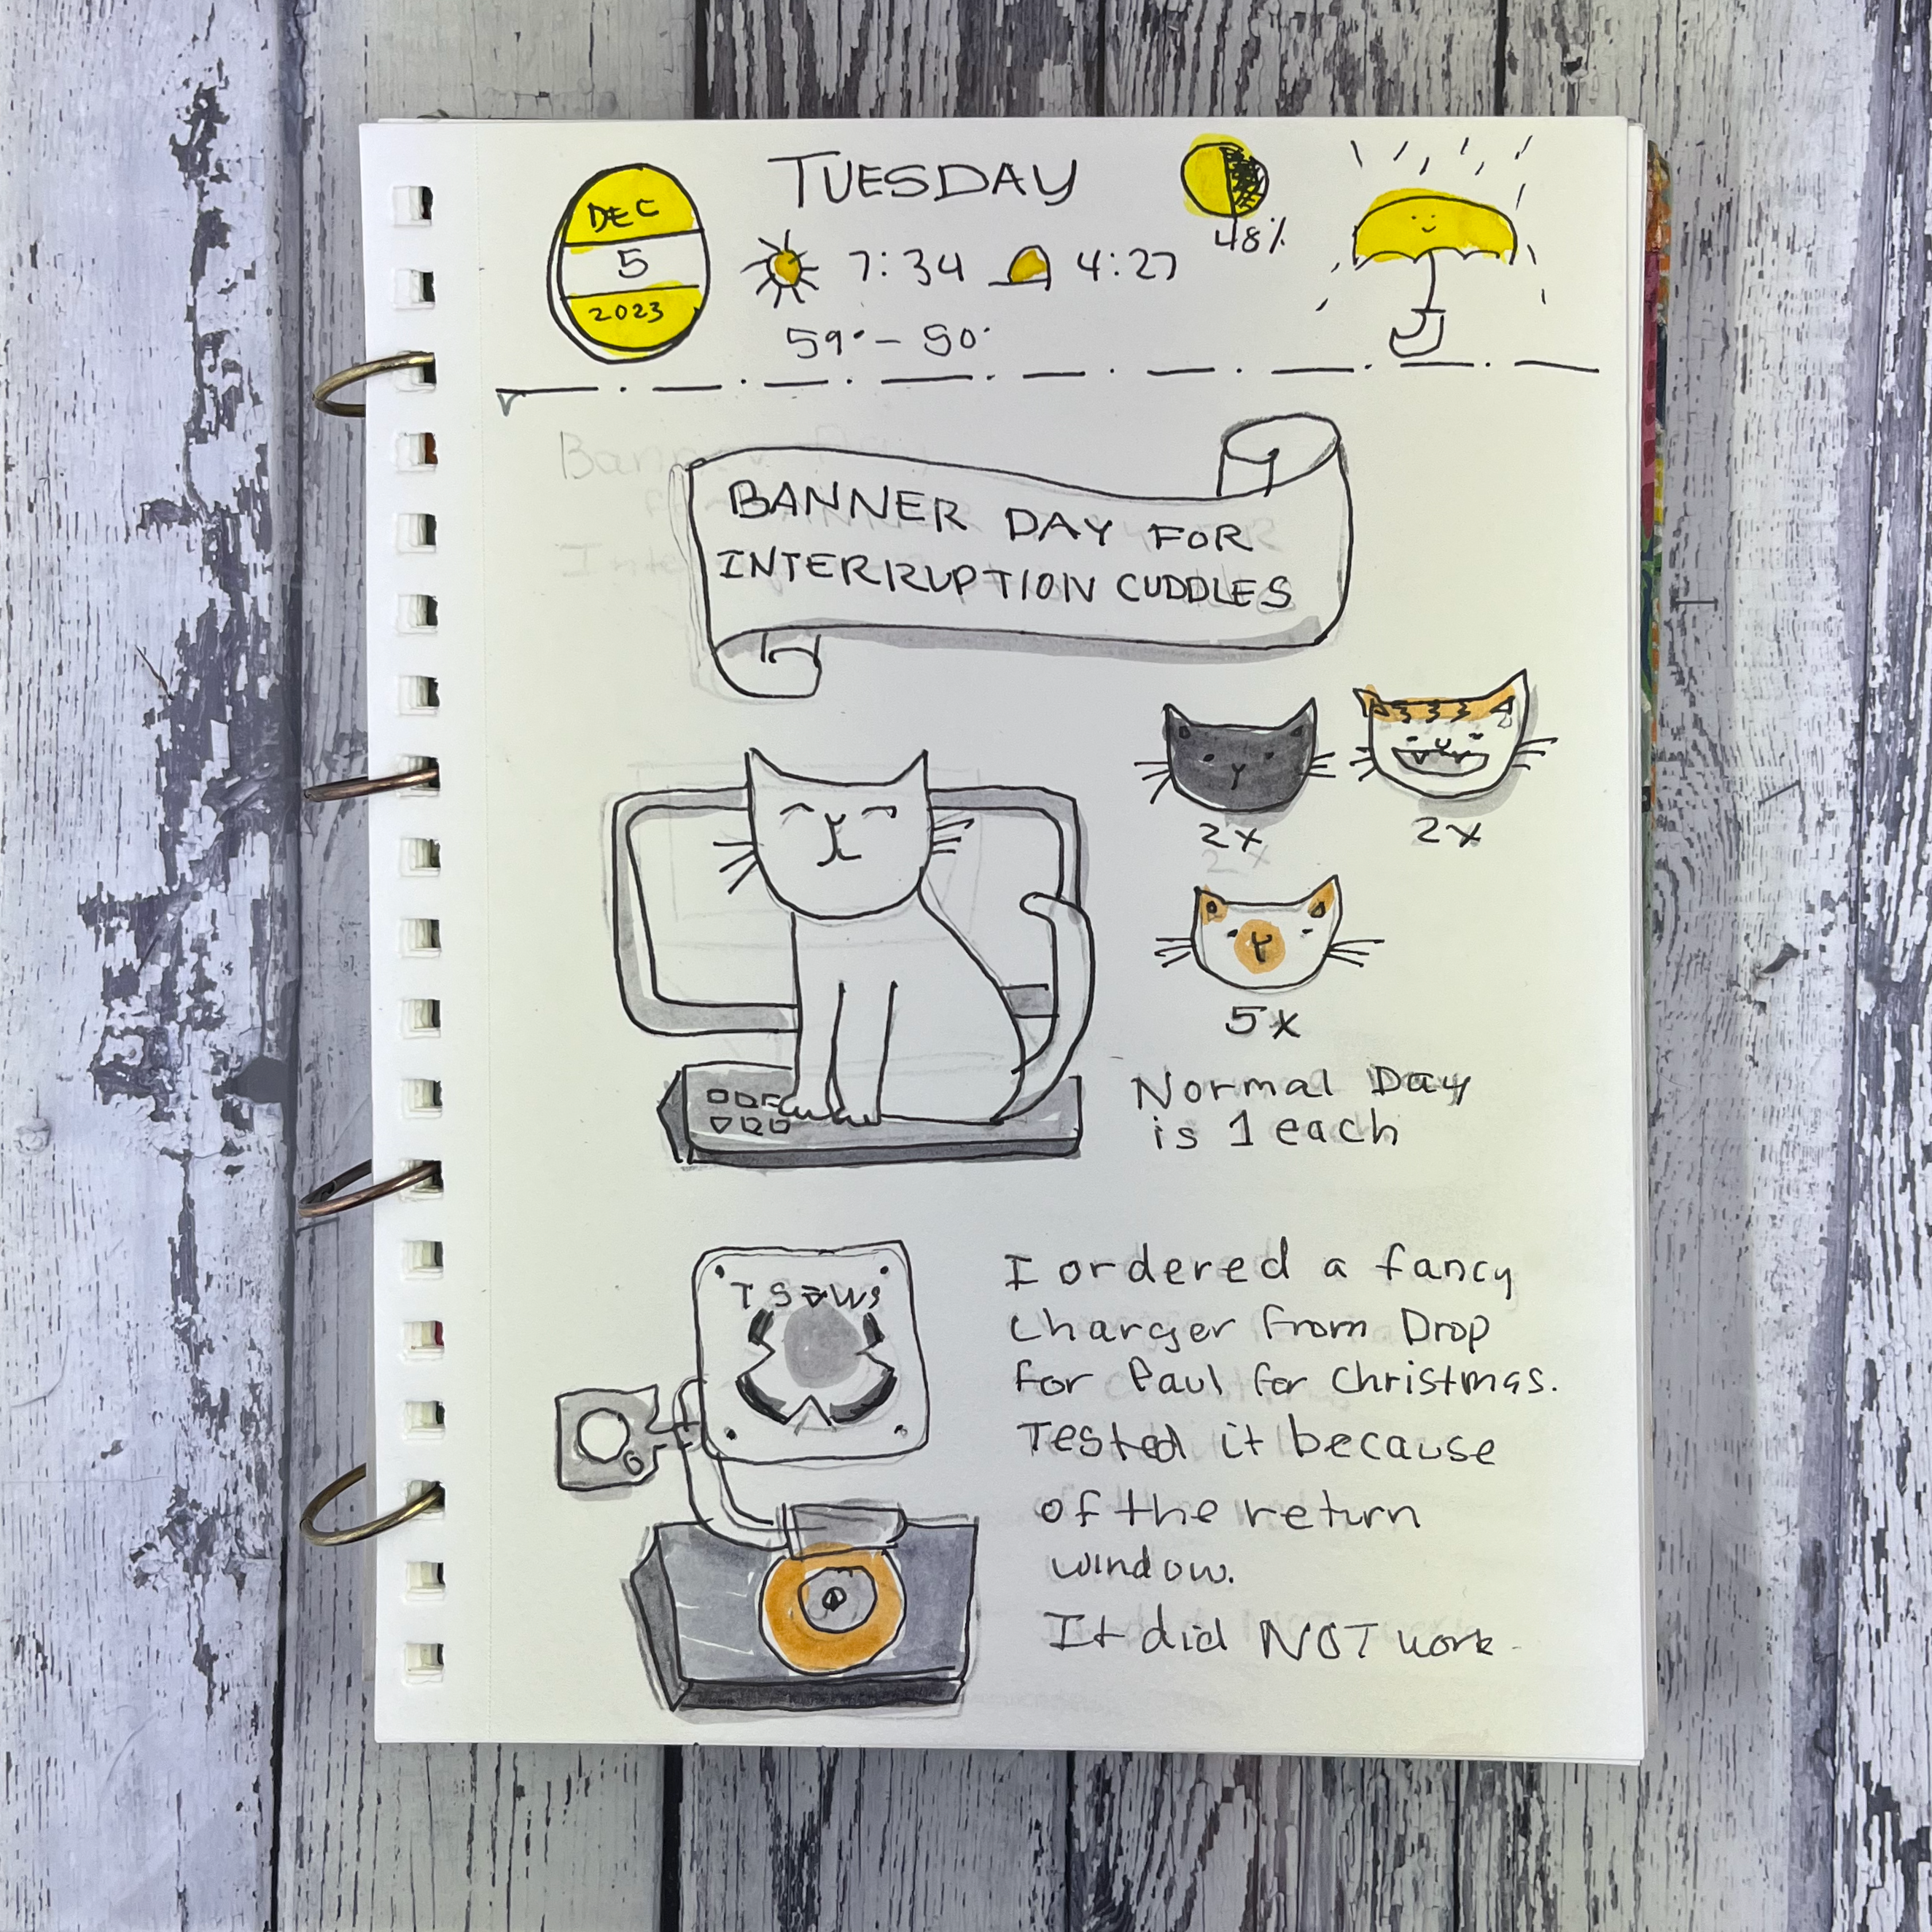 TUESDAY
DEC
5
2023
7:34 4:27
48%
59°- 50°
BANNER DAY FOR
INTERRUPTION CUDDLES
2x
2x
5x
Normal Day
is 1 each
I ordered a fancy
charger from Drop
for Paul for Christmas.
Tested it because
of the return
window.
It did NOT work.